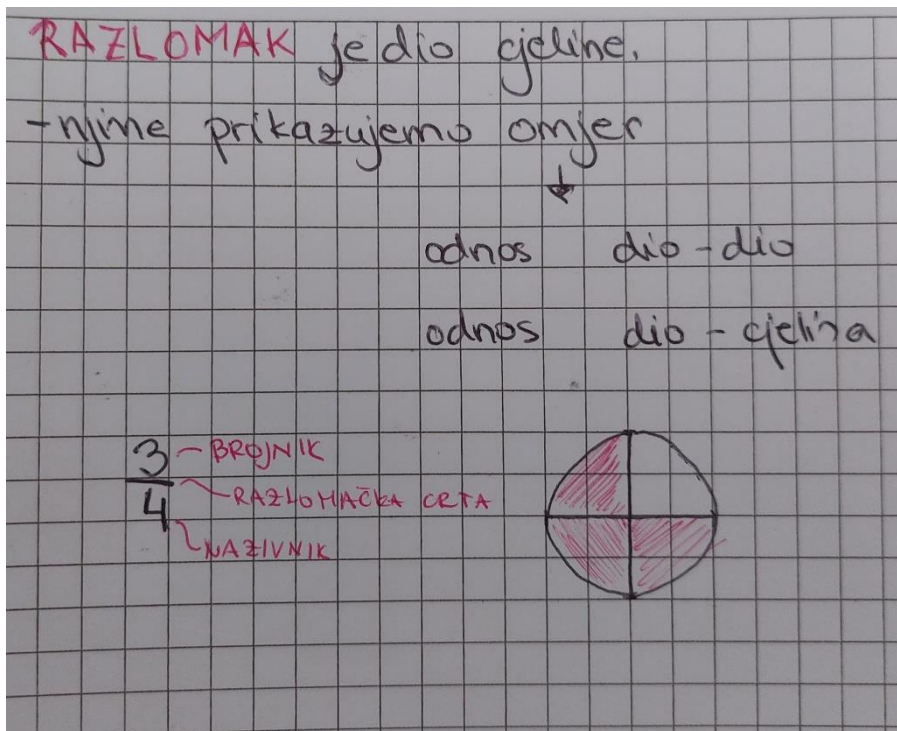 RAZLOMAK je dio cjeline.
-njime prikazujemo omjer
odnos dio-dio
odnos dio - cjelina
3 - BROJNIK
RAZLOMAČKA CRTA
4 NAZIVNIK